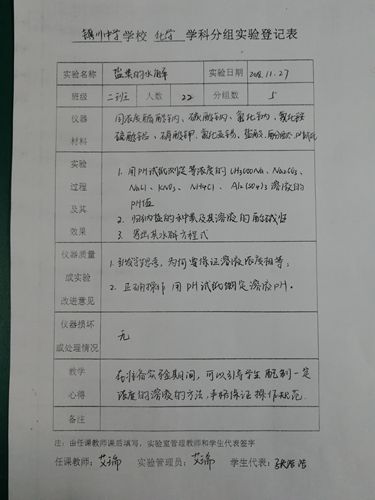 银川中学学校 化学 学科分组实验登记表
实验名称 盐类的水解 实验日期 2018.11.27
班级 二班 人数 22 分组数 5
仪器 材料
同浓度醋酸钠、碳酸钠、氯化钠、氯化铵
硫酸铝、硝酸钾、氯化亚锡、盐酸、酚酞 pH试纸
实验 过程 及其 效果
1. 用PH试纸测定等浓度的 CH3COONa、Na2CO3、
NaCl、KNO3、NH4Cl、Al2(SO4)3 溶液的
PH值
2. 归纳盐的种类及其溶液的酸碱性
3. 写出其水解方程式
仪器质量 或实验 改进意见
1. 引发学生思考,为何要保证溶液浓度相等;
2. 正确操作 用PH试纸测定溶液pH。
仪器损坏 或处理情况
无
教学 心得
在准备实验期间,可以引导学生 配制一定
浓度的溶液的方法,严格保证操作规范
备注
注:由任课教师课后填写,实验室管理教师和学生代表签字
任课教师:艾瑞 实验管理员:艾瑞 学生代表: